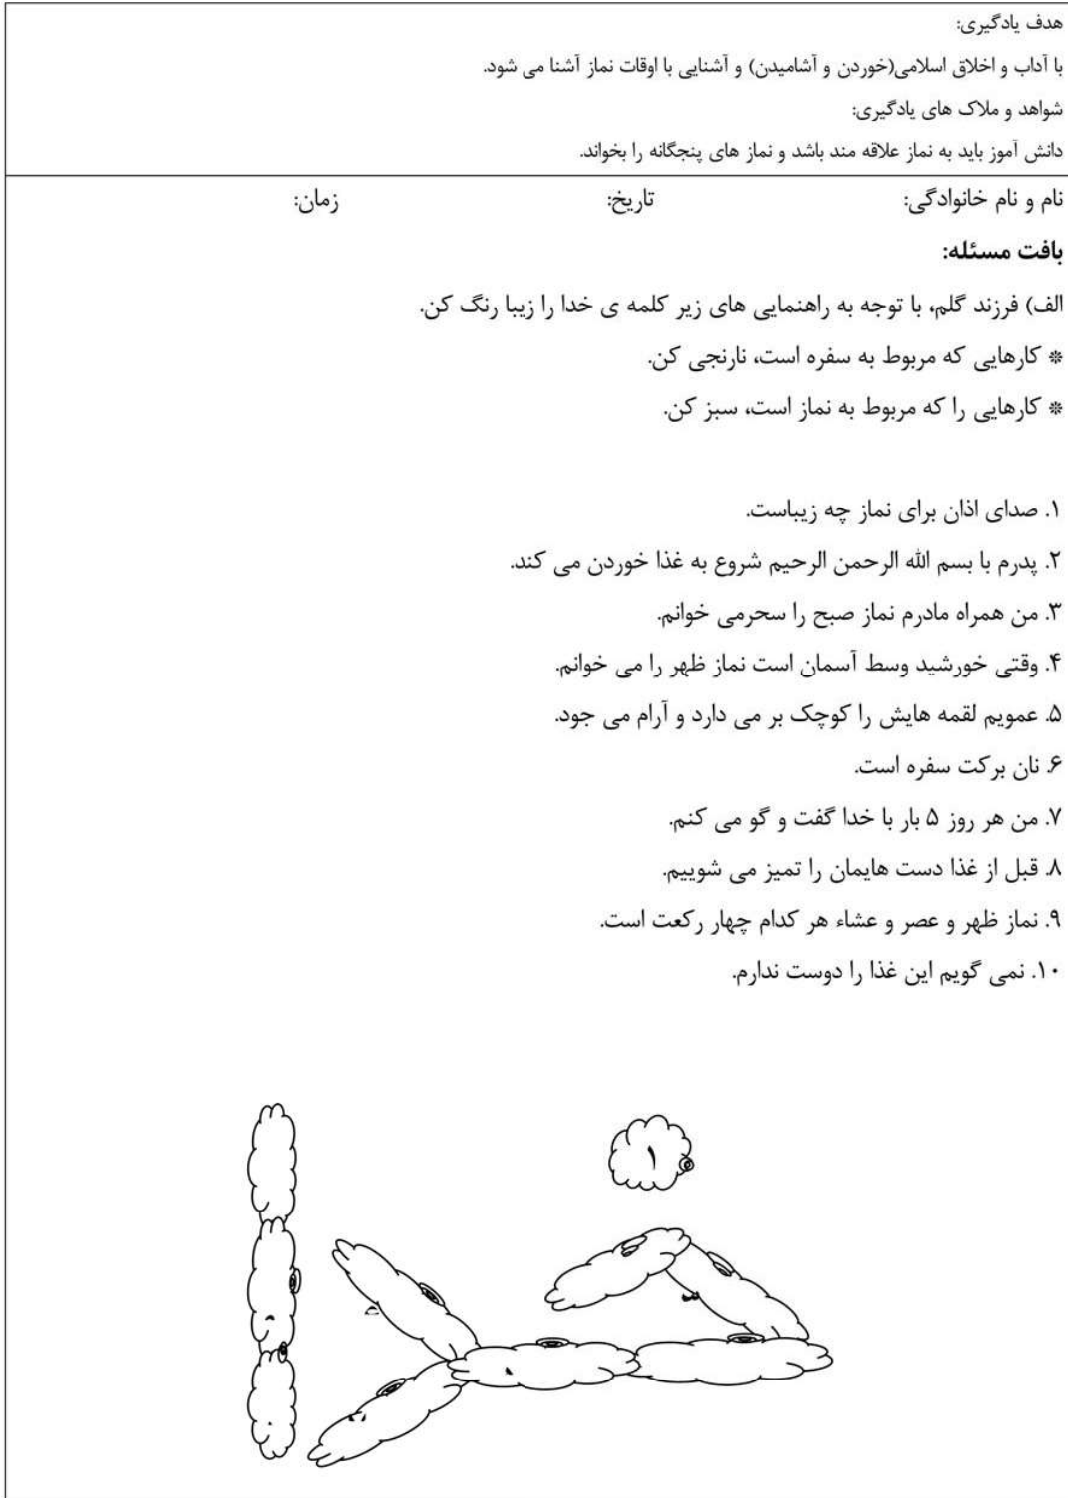 هدف یادگیری:
با آداب و اخلاق اسلامی(خوردن و آشامیدن) و آشنایی با اوقات نماز آشنا می شود.
شواهد و ملاک های یادگیری:
دانش آموز باید به نماز علاقه مند باشد و نماز های پنجگانه را بخواند.
نام و نام خانوادگی: تاریخ: زمان:
بافت مسئله:
الف) فرزند گلم، با توجه به راهنمایی های زیر کلمه ی خدا را زیبا رنگ کن.
* کارهایی که مربوط به سفره است، نارنجی کن.
* کارهایی را که مربوط به نماز است، سبز کن.
۱. صدای اذان برای نماز چه زیباست.
۲. پدرم با بسم الله الرحمن الرحیم شروع به غذا خوردن می کند.
۳. من همراه مادرم نماز صبح را سحرمی خوانم.
۴. وقتی خورشید وسط آسمان است نماز ظهر را می خوانم.
۵. عمویم لقمه هایش را کوچک بر می دارد و آرام می جود.
۶. نان برکت سفره است.
۷. من هر روز ۵ بار با خدا گفت و گو می کنم.
۸. قبل از غذا دست هایمان را تمیز می شوییم.
۹. نماز ظهر و عصر و عشاء هر کدام چهار رکعت است.
۱۰. نمی گویم این غذا را دوست ندارم.
۱